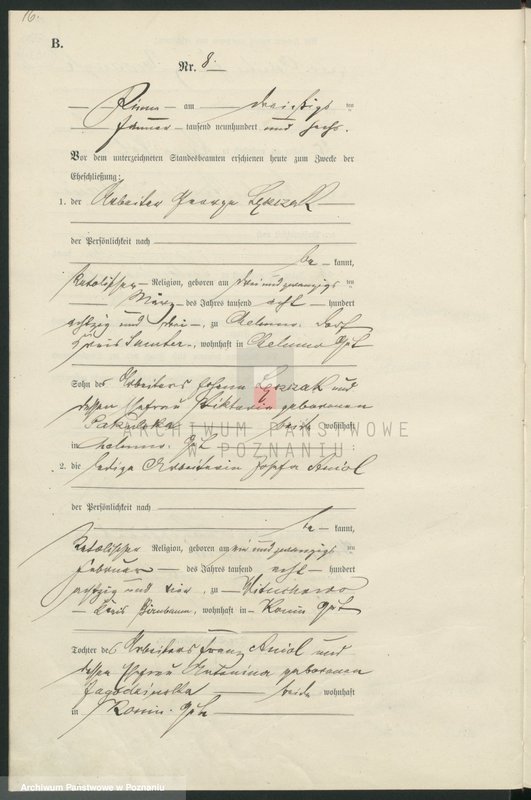 16.
B.
Nr. 8.
am dreißigsten
Januar tausend neunhundert und sechs.
Vor dem unterzeichneten Standesbeamten erschienen heute zum Zwecke der
Eheschließung:
1. der Arbeiter George
der Persönlichkeit nach
be kannt,
katolischer Religion, geboren am drei und zwanzigs ten
März des Jahres tausend acht hundert
achtzig und drei, zu Chelmno Dorf
Kreis Samter, wohnhaft in Chelmno Gut
Sohn des Arbeiters Johann und
dessen Ehefrau Viktoria geborenen
beide wohnhaft
in Chelmno Gut
2. die ledige Arbeiterin Josefa Aniol
der Persönlichkeit nach
be kannt,
katolischer Religion, geboren am ein und zwanzigs ten
Februar des Jahres tausend acht hundert
achtzig und vier, zu
Kreis Birnbaum, wohnhaft in Gut
Tochter des Arbeiters Franz Aniol und
dessen Ehefrau Antonina geborenen
beide wohnhaft
in Gut
ARCHIWUM PAŃSTWOWE
W POZNANIU
Archiwum Państwowe w Poznaniu